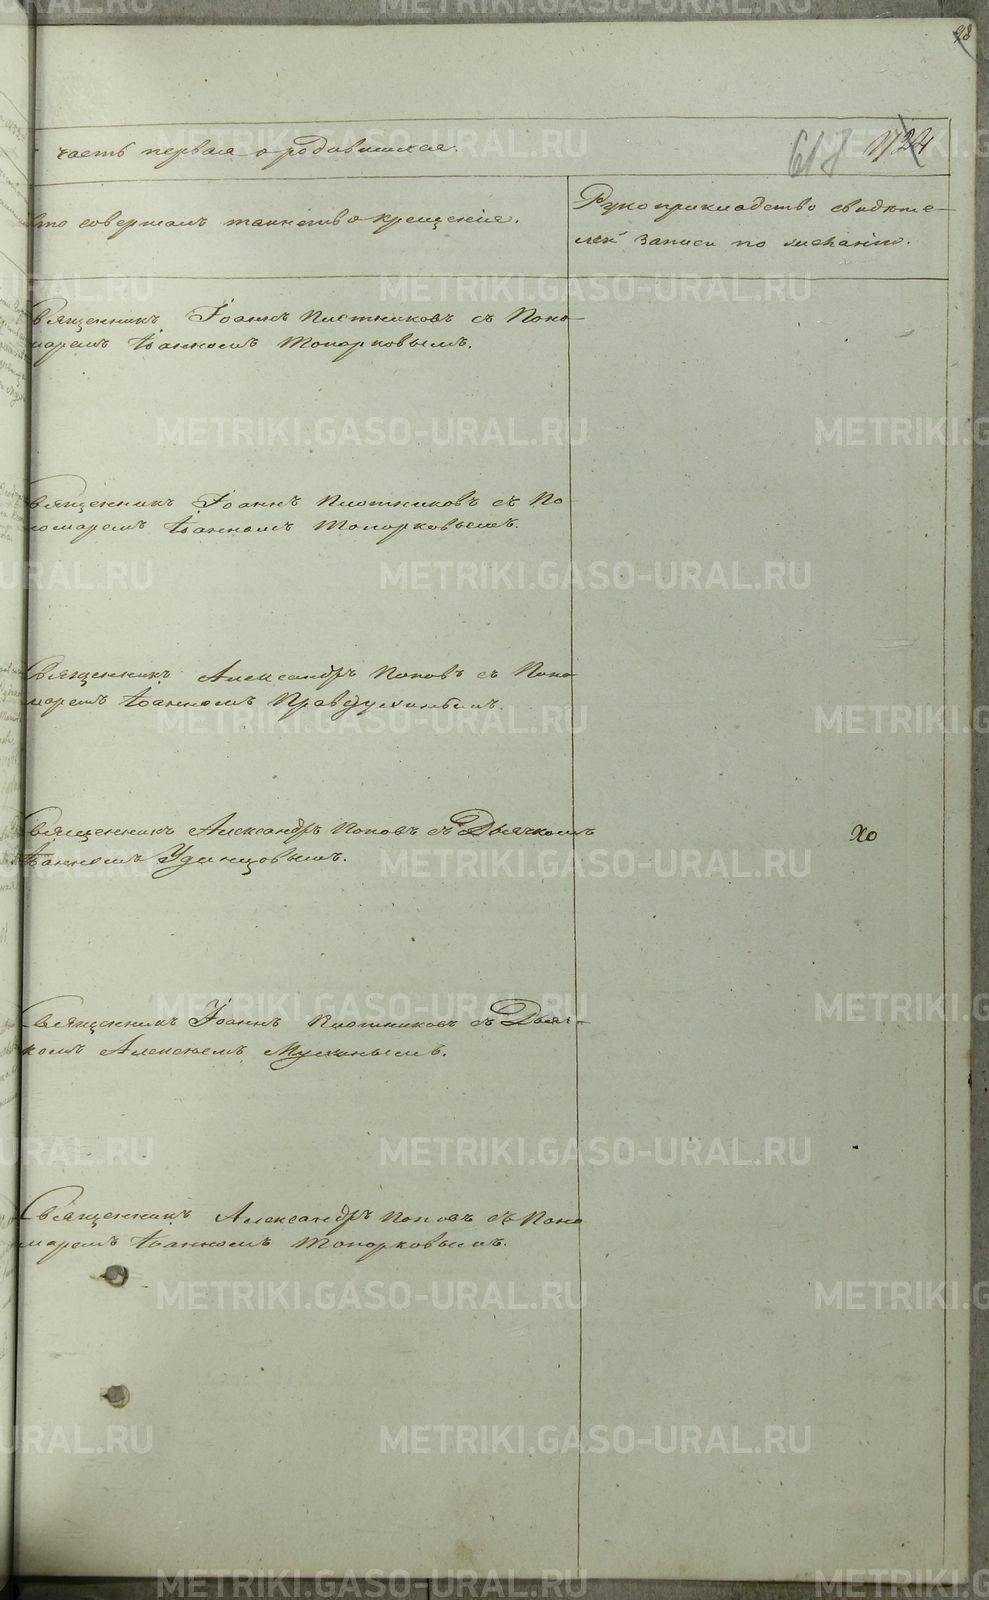 98
часть первая о родившихся.
617 1724
Кто совершалъ таинство крещенія.
Рукоприкладство свидѣте-
лей записи по желанію.
Священникъ Іоаннъ Плотниковъ съ Поно-
маремъ Іоанномъ Топорковымъ.
Священникъ Іоаннъ Плотниковъ съ По-
номаремъ Іоанномъ Топорковымъ.
Священникъ Александръ Поповъ съ Поно-
маремъ Іоанномъ Правдухинымъ.
Священникъ Александръ Поповъ съ Дьячкомъ
Іоанномъ Удинцовымъ.
Хо
Священникъ Іоаннъ Плотниковъ съ Дьяч-
комъ Алексѣемъ Мухинымъ.
Священникъ Александръ Поповъ съ Поно-
маремъ Іоанномъ Топорковымъ.
METRIKI.GASO-URAL.RU